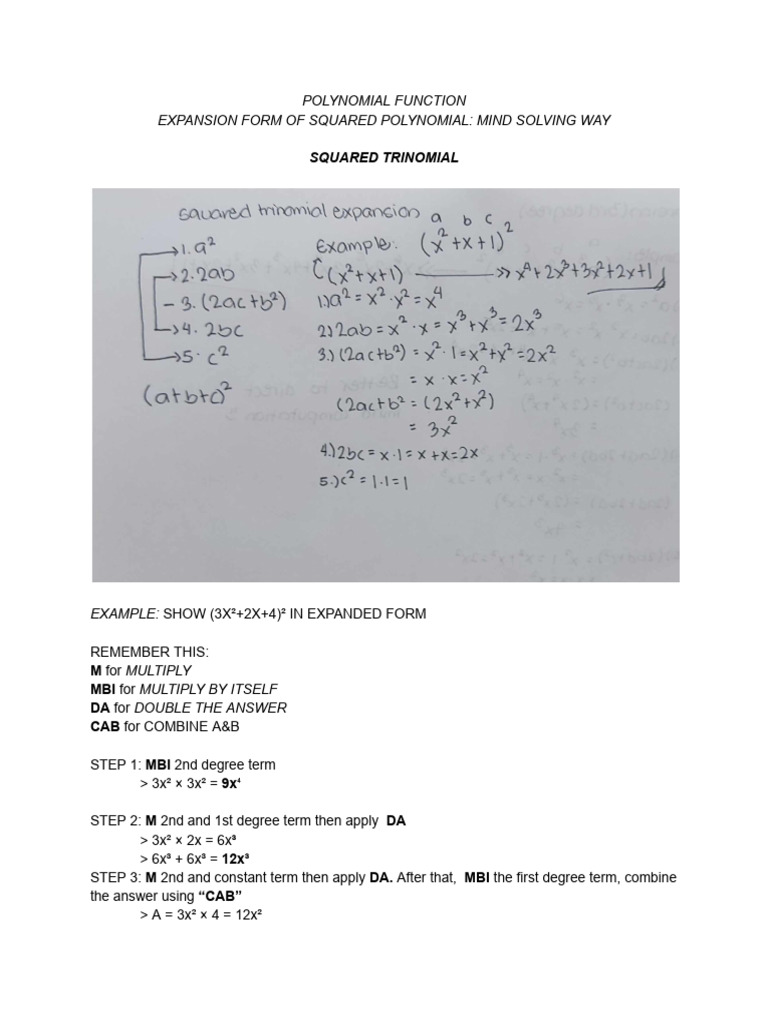 POLYNOMIAL FUNCTION
EXPANSION FORM OF SQUARED POLYNOMIAL: MIND SOLVING WAY
SQUARED TRINOMIAL
squared trinomial expansion
1. a²
2. 2ab
3. (2ac+b²)
4. 2bc
5. c²
(a+b+c)²
a b c
Example: (x²+x+1)²
(x²+x+1) → x⁴+2x³+3x²+2x+1
1.) a² = x²·x² = x⁴
2) 2ab = x²·x = x³+x³ = 2x³
3.) (2ac+b²) = x²·1 = x²+x² = 2x²
= x·x = x²
(2ac+b² = (2x²+x²)
= 3x²
4.) 2bc = x·1 = x+x = 2x
5.) c² = 1·1 = 1
EXAMPLE: SHOW (3X²+2X+4)² IN EXPANDED FORM
REMEMBER THIS:
M for MULTIPLY
MBI for MULTIPLY BY ITSELF
DA for DOUBLE THE ANSWER
CAB for COMBINE A&B
STEP 1: MBI 2nd degree term
> 3x² × 3x² = 9x⁴
STEP 2: M 2nd and 1st degree term then apply DA
> 3x² × 2x = 6x³
> 6x³ + 6x³ = 12x³
STEP 3: M 2nd and constant term then apply DA. After that, MBI the first degree term, combine
the answer using “CAB”
> A = 3x² × 4 = 12x²